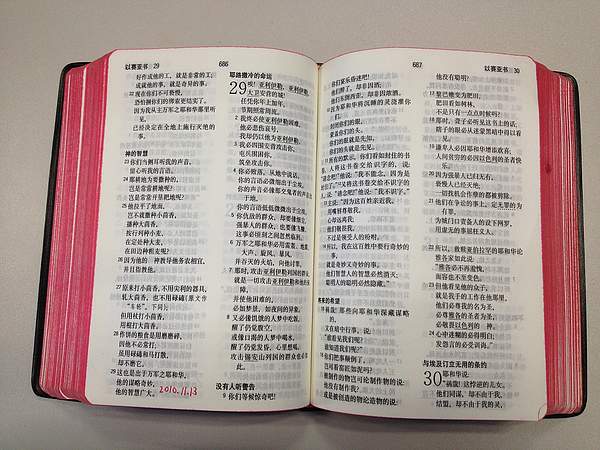 以赛亚书 29
686
好作成他的工，就是非常的工；
成就他的事，就是奇异的事。
22 现在你们不可亵慢，
恐怕捆你们的绑索更结实了。
因为我从主万军之耶和华那里听
见，
已经决定在全地上施行灭绝的
事。
神的智慧
23 你们当侧耳听我的声音，
留心听我的言语。
24 那耕地为要撒种的，
岂是常常耕地呢？
岂是常常开垦耙地呢？
25 他拉平了地面，
岂不就撒种小茴香，
播种大茴香，
按行列种小麦，
在定处种大麦，
在田边种粗麦呢？
26 因为他的 神教导他务农相宜，
并且指教他。
27 原来打小茴香，不用尖利的器具，
轧大茴香，也不用碌碡（原文作
“车轮”，下同）；
但用杖打小茴香，
用棍打大茴香。
28 作饼的粮食是用磨磨碎，
因他不必常打；
虽用碌碡和马打散，
却不磨它。
29 这也是出于万军之耶和华，
他的谋略奇妙，
他的智慧广大。
2010.11.13
耶路撒冷的命运
29 唉！亚利伊勒，亚利伊勒，
大卫安营的城！
任凭你年上加年，
节期照常周流。
2 我终必使亚利伊勒困难，
他必悲伤哀号，
我却仍以他为亚利伊勒。
3 我必四围安营攻击你，
屯兵围困你，
筑垒攻击你。
4 你必败落，从地中说话，
你的言语必微细出于尘埃。
你的声音必像那交鬼者的声音出
于地，
你的言语低低微微出于尘埃。
5 你仇敌的群众，却要像细尘，
强暴人的群众，也要像飞糠，
这事必顷刻之间忽然临到。
6 万军之耶和华必用雷轰、地震、
大声、旋风、暴风，
并吞灭的火焰，向他讨罪。
7 那时，攻击亚利伊勒列国的群众，
就是一切攻击亚利伊勒和他的保
障，
并使他困难的，
必如梦景，如夜间的异象。
8 又必像饥饿的人梦中吃饭，
醒了仍觉腹空，
或像口渴的人梦中喝水，
醒了仍觉发昏，心里想喝。
攻击锡安山列国的群众也必如
此。
没有人听警告
9 你们等候惊奇吧！
687
以赛亚书 30
你们宴乐昏迷吧！
他们醉了，却非因酒；
他们东倒西歪，却非因浓酒。
10 因为耶和华将沉睡的灵浇灌你
们，
封闭你们的眼，
蒙盖你们的头。
你们的眼就是先知，
你们的头就是先见。
11 所有的默示，你们看如封住的书
卷，人将这书卷交给识字的，说：
“请念吧！”他说：“我不能念，因为是
封住了。”12 又将这书卷交给不识字的
人，说：“请念吧！”他说：“我不识字。”
13 主说：“因为这百姓亲近我，
用嘴唇尊敬我，
心却远离我；
他们敬畏我，
不过是领受人的吩咐。
14 所以，我在这百姓中要行奇妙的
事，
就是奇妙又奇妙的事。
他们智慧人的智慧必然消灭；
聪明人的聪明必然隐藏。”
将来的希望
15 祸哉！那些向耶和华深藏谋略
的，
又在暗中行事，说：
“谁看见我们呢？
谁知道我们呢？”
16 你们把事颠倒了，
岂可看窑匠如泥吗？
被制作的物岂可论制作物的说：
他没有作我？
或是被创造的物论造物的说：
他没有聪明？
17 黎巴嫩变为肥田，
肥田看如树林，
不是只有一点点时候吗？
18 那时，聋子必听见这书上的话；
瞎子的眼必从迷蒙黑暗中得以看
见。
19 谦卑人必因耶和华增添欢喜；
人间贫穷的必因以色列的圣者快
乐。
20 因为强暴人已归无有，
亵慢人已经灭绝，
一切找机会作孽的都被剪除。
21 他们在争讼的事上，定无罪的为
有罪，
为城门口责备人的设下网罗，
用虚无的事屈枉义人。
22 所以，救赎亚伯拉罕的耶和华论
雅各家如此说：
“雅各必不再羞愧，
面容也不至变色。
23 但他看见他的众子，
就是我手的工作在他那里，
他们必尊我的名为圣，
必尊雅各的圣者为圣，
必敬畏以色列的 神。
24 心中迷糊的必得明白；
发怨言的必受训诲。”
与埃及订立无用的条约
30 耶和华说：
“祸哉！这悖逆的儿女，
他们同谋，却不由于我，
结盟，却不由于我的灵，